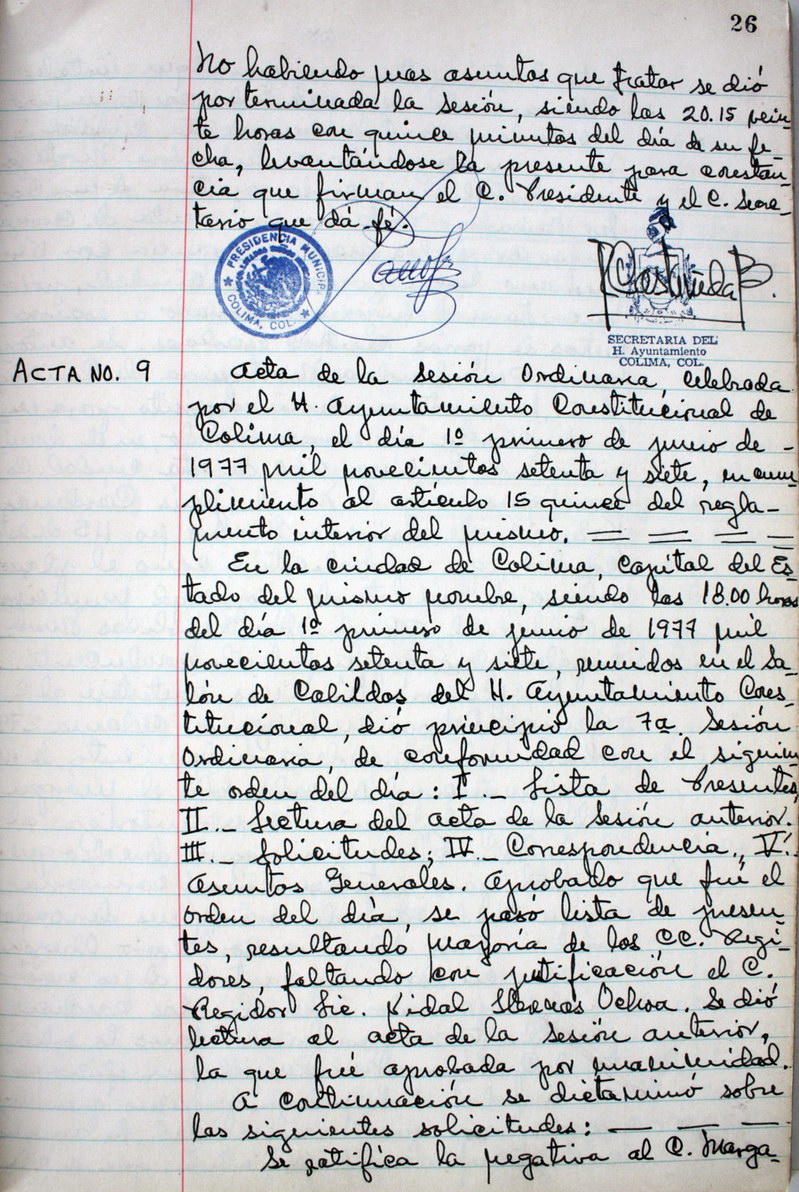 26
No habiendo mas asuntos que tratar se dió
por terminada la sesión, siendo las 20.15 vein-
te horas con quince minutos del día de su fe-
cha, levantándose la presente para constan-
cia que firman el C. Presidente y el C. Secre-
tario que dá fé.
PRESIDENCIA MUNICIPAL
COLIMA, COL.
Castañeda B.
SECRETARIA DEL
H. Ayuntamiento
COLIMA, COL.
ACTA NO. 9
Acta de la Sesión Ordinaria, celebrada
por el H. Ayuntamiento Constitucional de
Colima, el día 1º primero de junio de -
1977 mil novecientos setenta y siete, en cum-
plimiento al artículo 15 quince del regla-
mento interior del mismo. = = = =
En la ciudad de Colima, capital del Es-
tado del mismo nombre, siendo las 18.00 horas
del día 1º primero de junio de 1977 mil
novecientos setenta y siete, reunidos en el Sa-
lón de Cabildos del H. Ayuntamiento Cons-
titucional, dió principio la 7a. Sesión
Ordinaria, de conformidad con el siguien-
te orden del día: I.- Lista de Presentes,
II.- Lectura del acta de la Sesión anterior.
III.- Solicitudes; IV.- Correspondencia, V.-
Asuntos Generales. Aprobado que fué el
orden del día, se pasó lista de presen-
tes, resultando mayoría de los CC. Regi-
dores, faltando con jutificación el C.
Regidor Lic. Vidal Llerenas Ochoa. Se dió
lectura al acta de la Sesión anterior,
la que fué aprobada por unanimidad.
A continuación se dictaminó sobre
las siguientes solicitudes: — — —
Se ratifica la negativa al C. Marga-